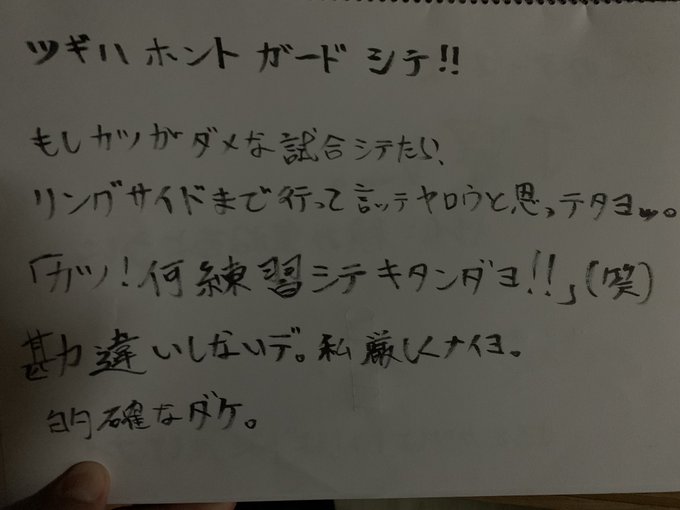 ツギハ ホント ガード シテ!!
もしカツがダメな試合シテたら、
リングサイドまで行って言ッテヤロウと思ッテタヨッ。
「カツ!何練習シテキタンダヨ!!」(笑)
勘違いしないデ。私厳しくナイヨ。
的確なダケ。